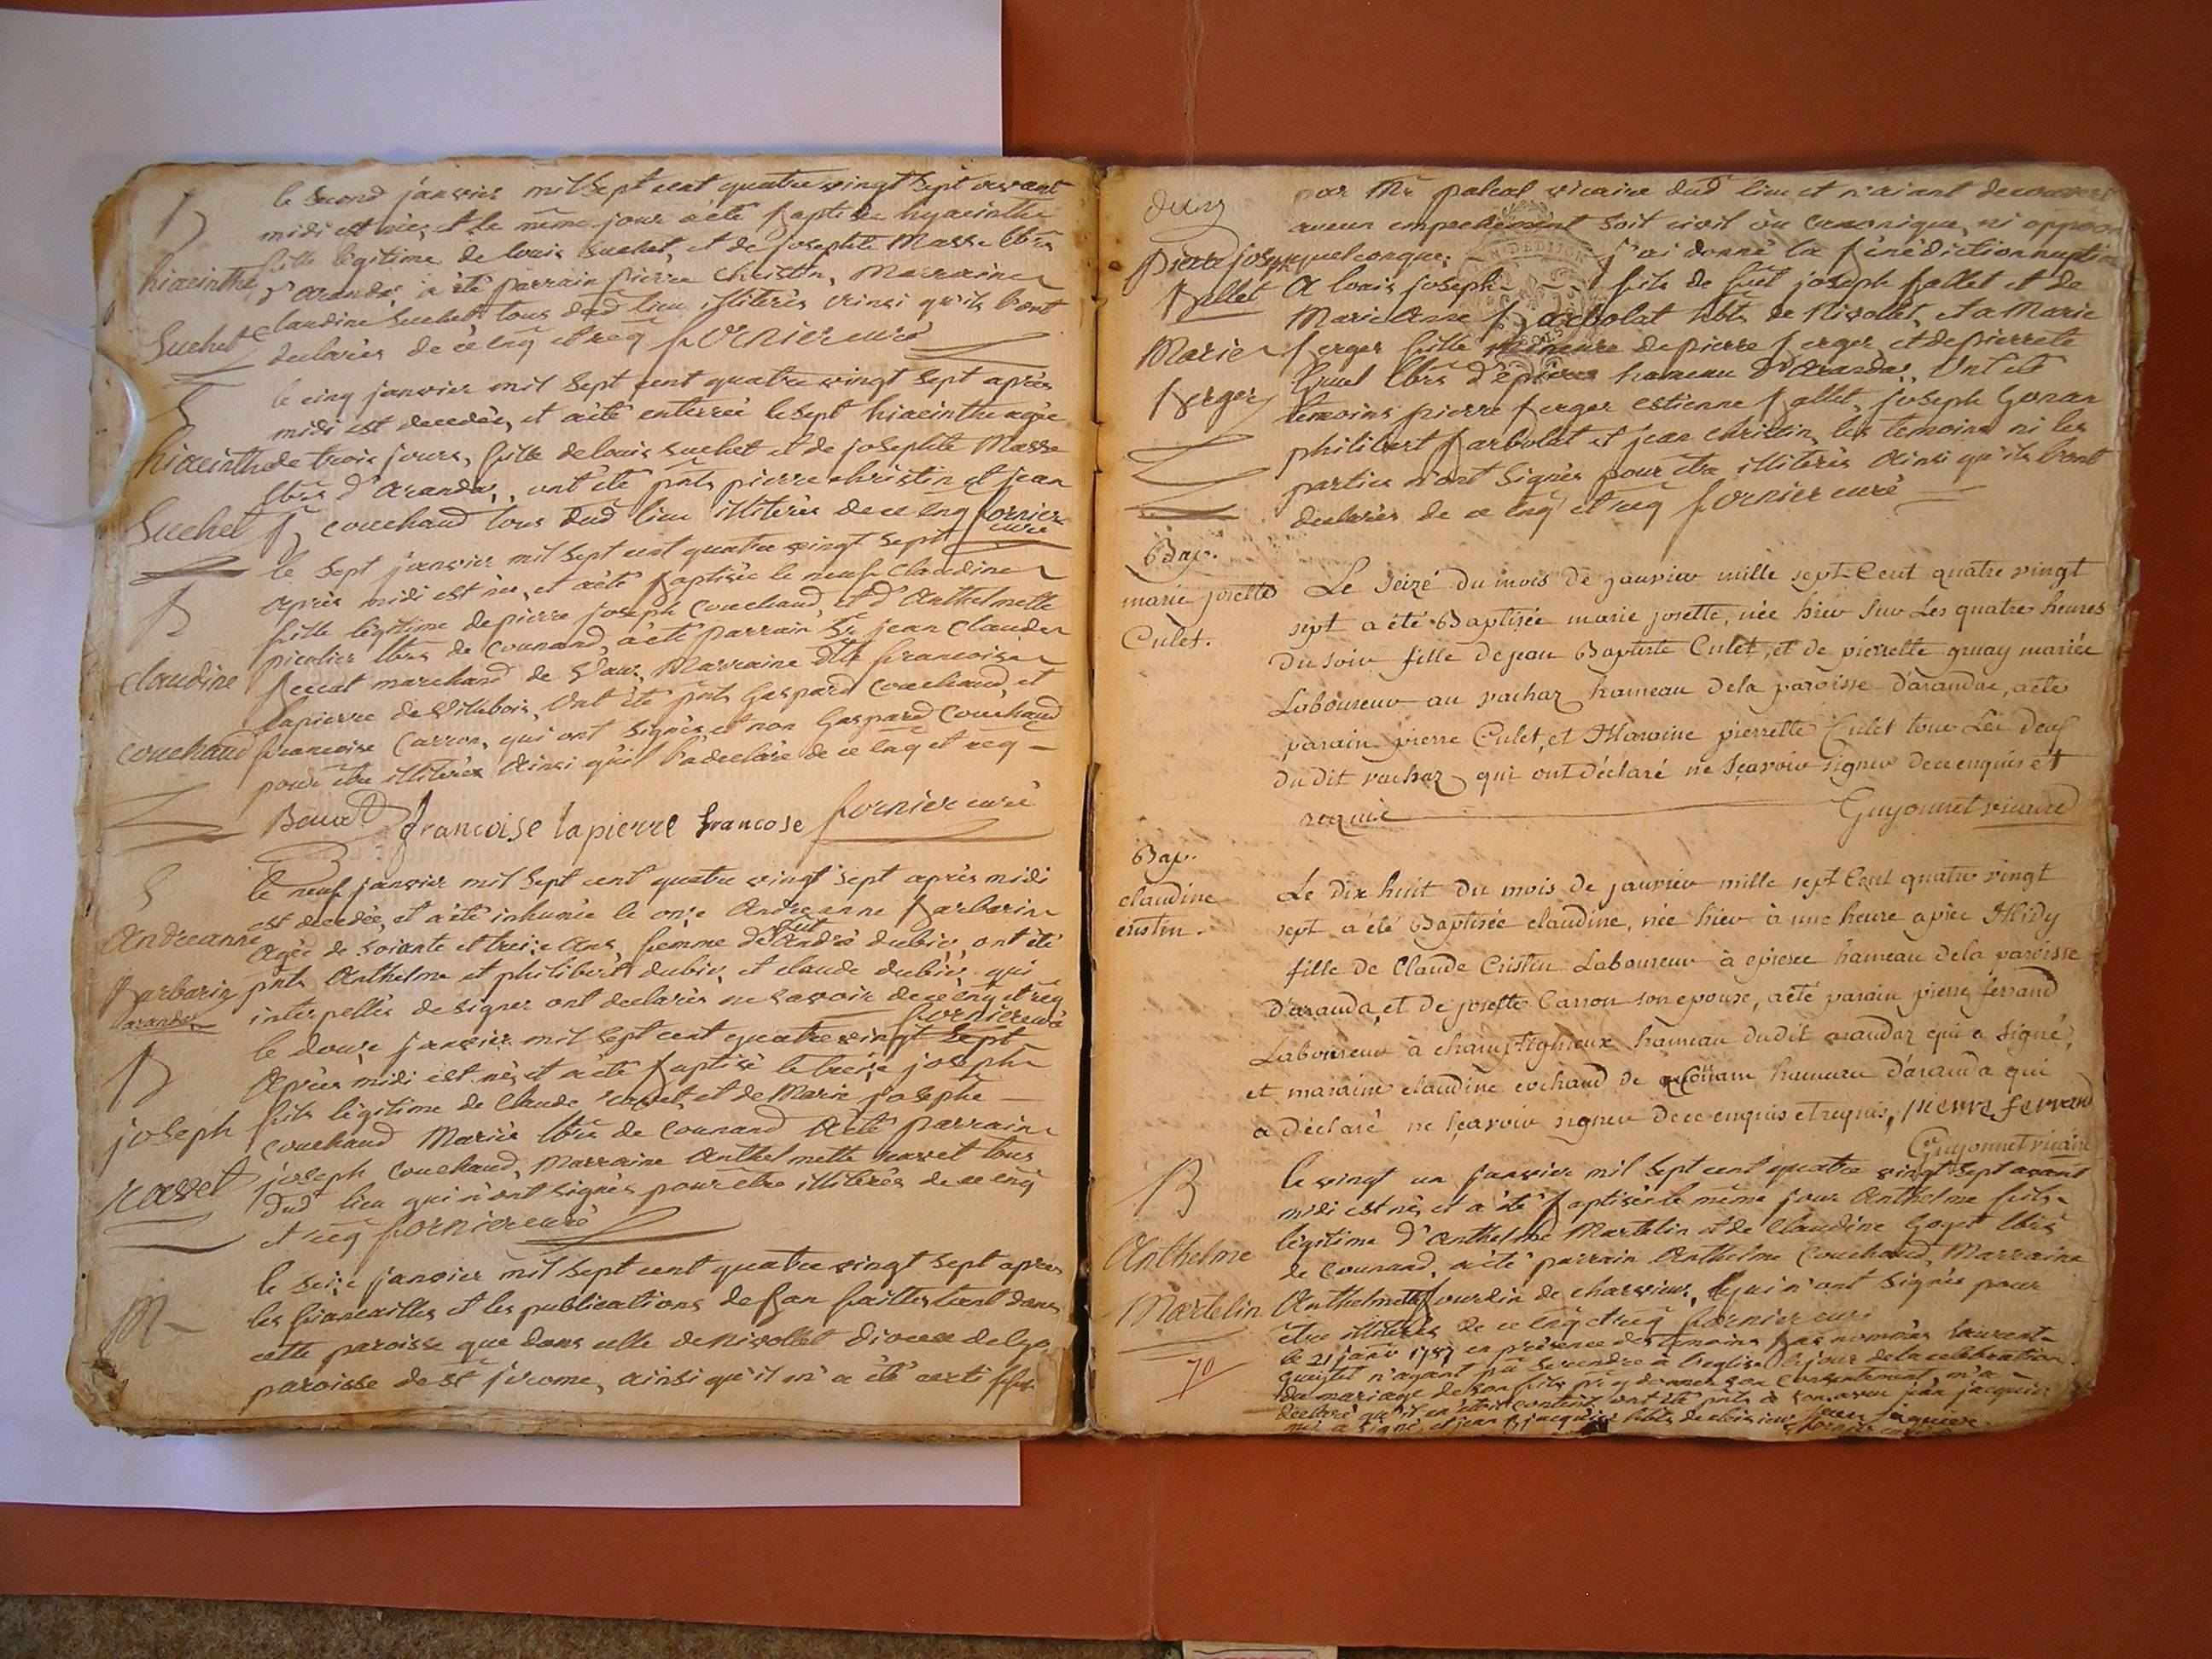 B
hiacinthe
Suchet
le second janvier mil sept cent quatre vingt sept avant
midi est née, et le même jour a été baptisée hyacinthe
fille légitime de louis suchet, et de josephte Masse lbrs
d'arandas, a été parrain pierre christin, Marraine
claudine suchet tous dud lieu illiterés ainsi qu'ils l'ont
declarés de ce enq et req fornier curé
S
hiacinthe
Suchet
le cinq janvier mil sept cent quatre vingt sept après
midi est decedée, et a été enterrée le sept hiacinthe agée
de trois jours, fille de louis suchet et de josephte Masse
lbrs d'arandas, ont été pnts pierre christin et jean
fs couchaud tous dud lieu illiterés de ce enq fornier
curé
B
claudine
couchaud
le sept janvier mil sept cent quatre vingt sept
après midi est née, et a été baptisée le neuf claudine
fille légitime de pierre joseph couchaud, et d'Anthelmette
lbrs de counand, a été parrain sr jean claude
marchand de vaux, Marraine dlle francoise
lapierre de villebois, ont été pnts Gaspard couchaud, et
francoise Carron, qui ont signés, et non Gaspard couchaud
pour être illiterés ainsi qu'il l'a declaré de ce enq et req
francoise lapierre francose fornier curé
S
Andreanne
Barbarin
darandas
le neuf janvier mil sept cent quatre vingt sept après midi
est decedée, et a été inhumée le onze Andreanne Barbarin
agée de soiante et treize ans, femme de fut André dubiez, ont été
pnts Anthelme et philibert dubiez, et claude dubiez qui
interpellés de signer ont declarés ne savoir de ce enq et req
fornier curé
B
joseph
ravet
le douze janvier mil sept cent quatre vingt sept
après midi est né, et a été baptisé le treize joseph
fils légitime de claude ravet, et de Marie josephe
couchaud Mariés lbrs de counand a été parrain
joseph couchaud, Marraine Anthelmette ravet tous
dud lieu qui n'ont signés pour être illiterés de ce enq
et req fornier curé
M
le seize janvier mil sept cent quatre vingt sept après
les fiancailles et les publications de ban faittes tant dans
cette paroisse que dans celle de nivollet diocese de lyo
paroisse de st jerome, ainsi qu'il m'a été certiffié
deux
Pierre joseph
Ballet
Marie
Berger
par Mr pascal vicaire dud lieu et n'aiant decouvert
aucun empechement soit civil ou canonique, ni oppoon
quelconque, j'ai donné la bénédiction nuptiale
A louis joseph fils de fut joseph ballet et de
Marie Anne Barbolat hbts de Nivollet, et a Marie
berger fille mineure de pierre berger et de pierrete
lbrs d'épierre hameau d'Arandas, Ont été
temoins pierre berger estienne ballet, joseph Gonan
philibert barbolat et jean christin, les temoins ni les
parties n'ont signés pour être illiterés ainsi qu'ils l'ont
declarés de ce enq et req fornier curé
Bap.
marie josette
Culet.
Le seizé du mois de janvier mille sept Cent quatre vingt
sept a été Baptisée marie josette, née hier sur Les quatre heures
du soir fille de jean Baptiste Culet, et de pierrette gruay mariée
Laboureur au vachaz hameau dela paroisse d'arandaz, a été
parain pierre Culet, et Maraine pierrette Culet tous Les deux
du dit vachaz qui ont déclaré ne sçavoir signer de ce enquis et
requis Guyonnet vicaire
Bap.
claudine
cristin.
Le dix huit du mois de janvier mille sept Cent quatre vingt
sept a été Baptisée claudine, née hier à une heure après Midy
fille de Claude Cristin Laboureur à épierre hameau dela paroisse
d'aranda, et de josette Carron son epouse, a été parain pierre ferrand
Laboureur à champtignieux hameau du dit arandaz qui a signé,
et maraine claudine cochaud de hameau d'aranda qui
a déclaré ne sçavoir signer de ce enquis et requis, pierre ferrand
Guyonnet vicaire
B
Anthelme
Martelin
70
le vingt un janvier mil sept cent quatre vingt sept avant
midi est né, et a été baptisé le même jour Anthelme fils
légitime d'Anthelme Martelin et de Claudine Goyet lbrs
de counand, a été parrain Anthelme Couchaud, Marraine
Anthelmette Jourdin de charvieux, qui n'ont signés pour
être illiterés de ce enq et req fornier curé
le 21 janv 1787 en présence des temoins bas nommés laurent
n'ayant pu se rendre a l'eglise le jour de la celebration
du mariage de son fils pr y donner son consentement, m'a
declaré qu'il en étoit content, ont été pnts a son aveu jean jacquier
qui a signé, et jean jean jaquier
fornier curé